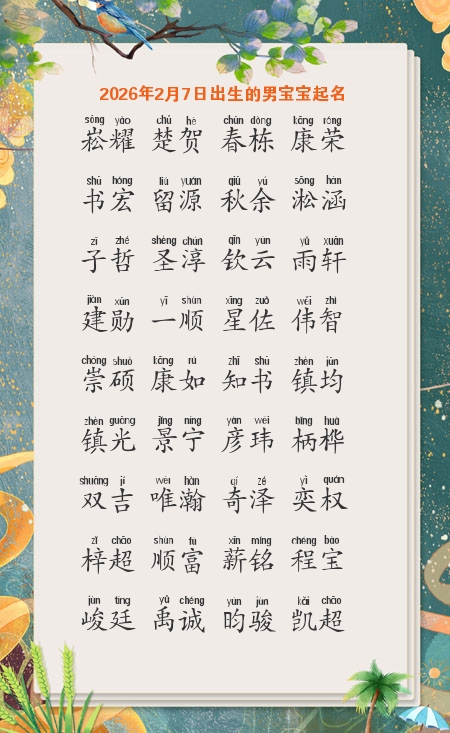 2026年2月7日出生的男宝宝起名
sóng yào chǔ hè chūn dòng kāng róng
崧耀 楚贺 春栋 康荣
shū hóng liú yuán qiū yú sōng hán
书宏 留源 秋余 淞涵
zǐ zhé shèng chún qīn yún yǔ xuān
子哲 圣淳 钦云 雨轩
jiàn xūn yī shùn xīng zuǒ wěi zhì
建勋 一顺 星佐 伟智
chóng shuò kāng rú zhī shū zhèn jūn
崇硕 康如 知书 镇均
zhèn guāng jǐng níng yàn wěi bǐng huà
镇光 景宁 彦玮 柄桦
shuāng jí wéi hàn qí zé yì quán
双吉 唯瀚 奇泽 奕权
zǐ chāo shùn fù xīn míng chéng bǎo
梓超 顺富 薪铭 程宝
jùn tíng yǔ chéng yún jùn kǎi chāo
峻廷 禹诚 昀骏 凯超